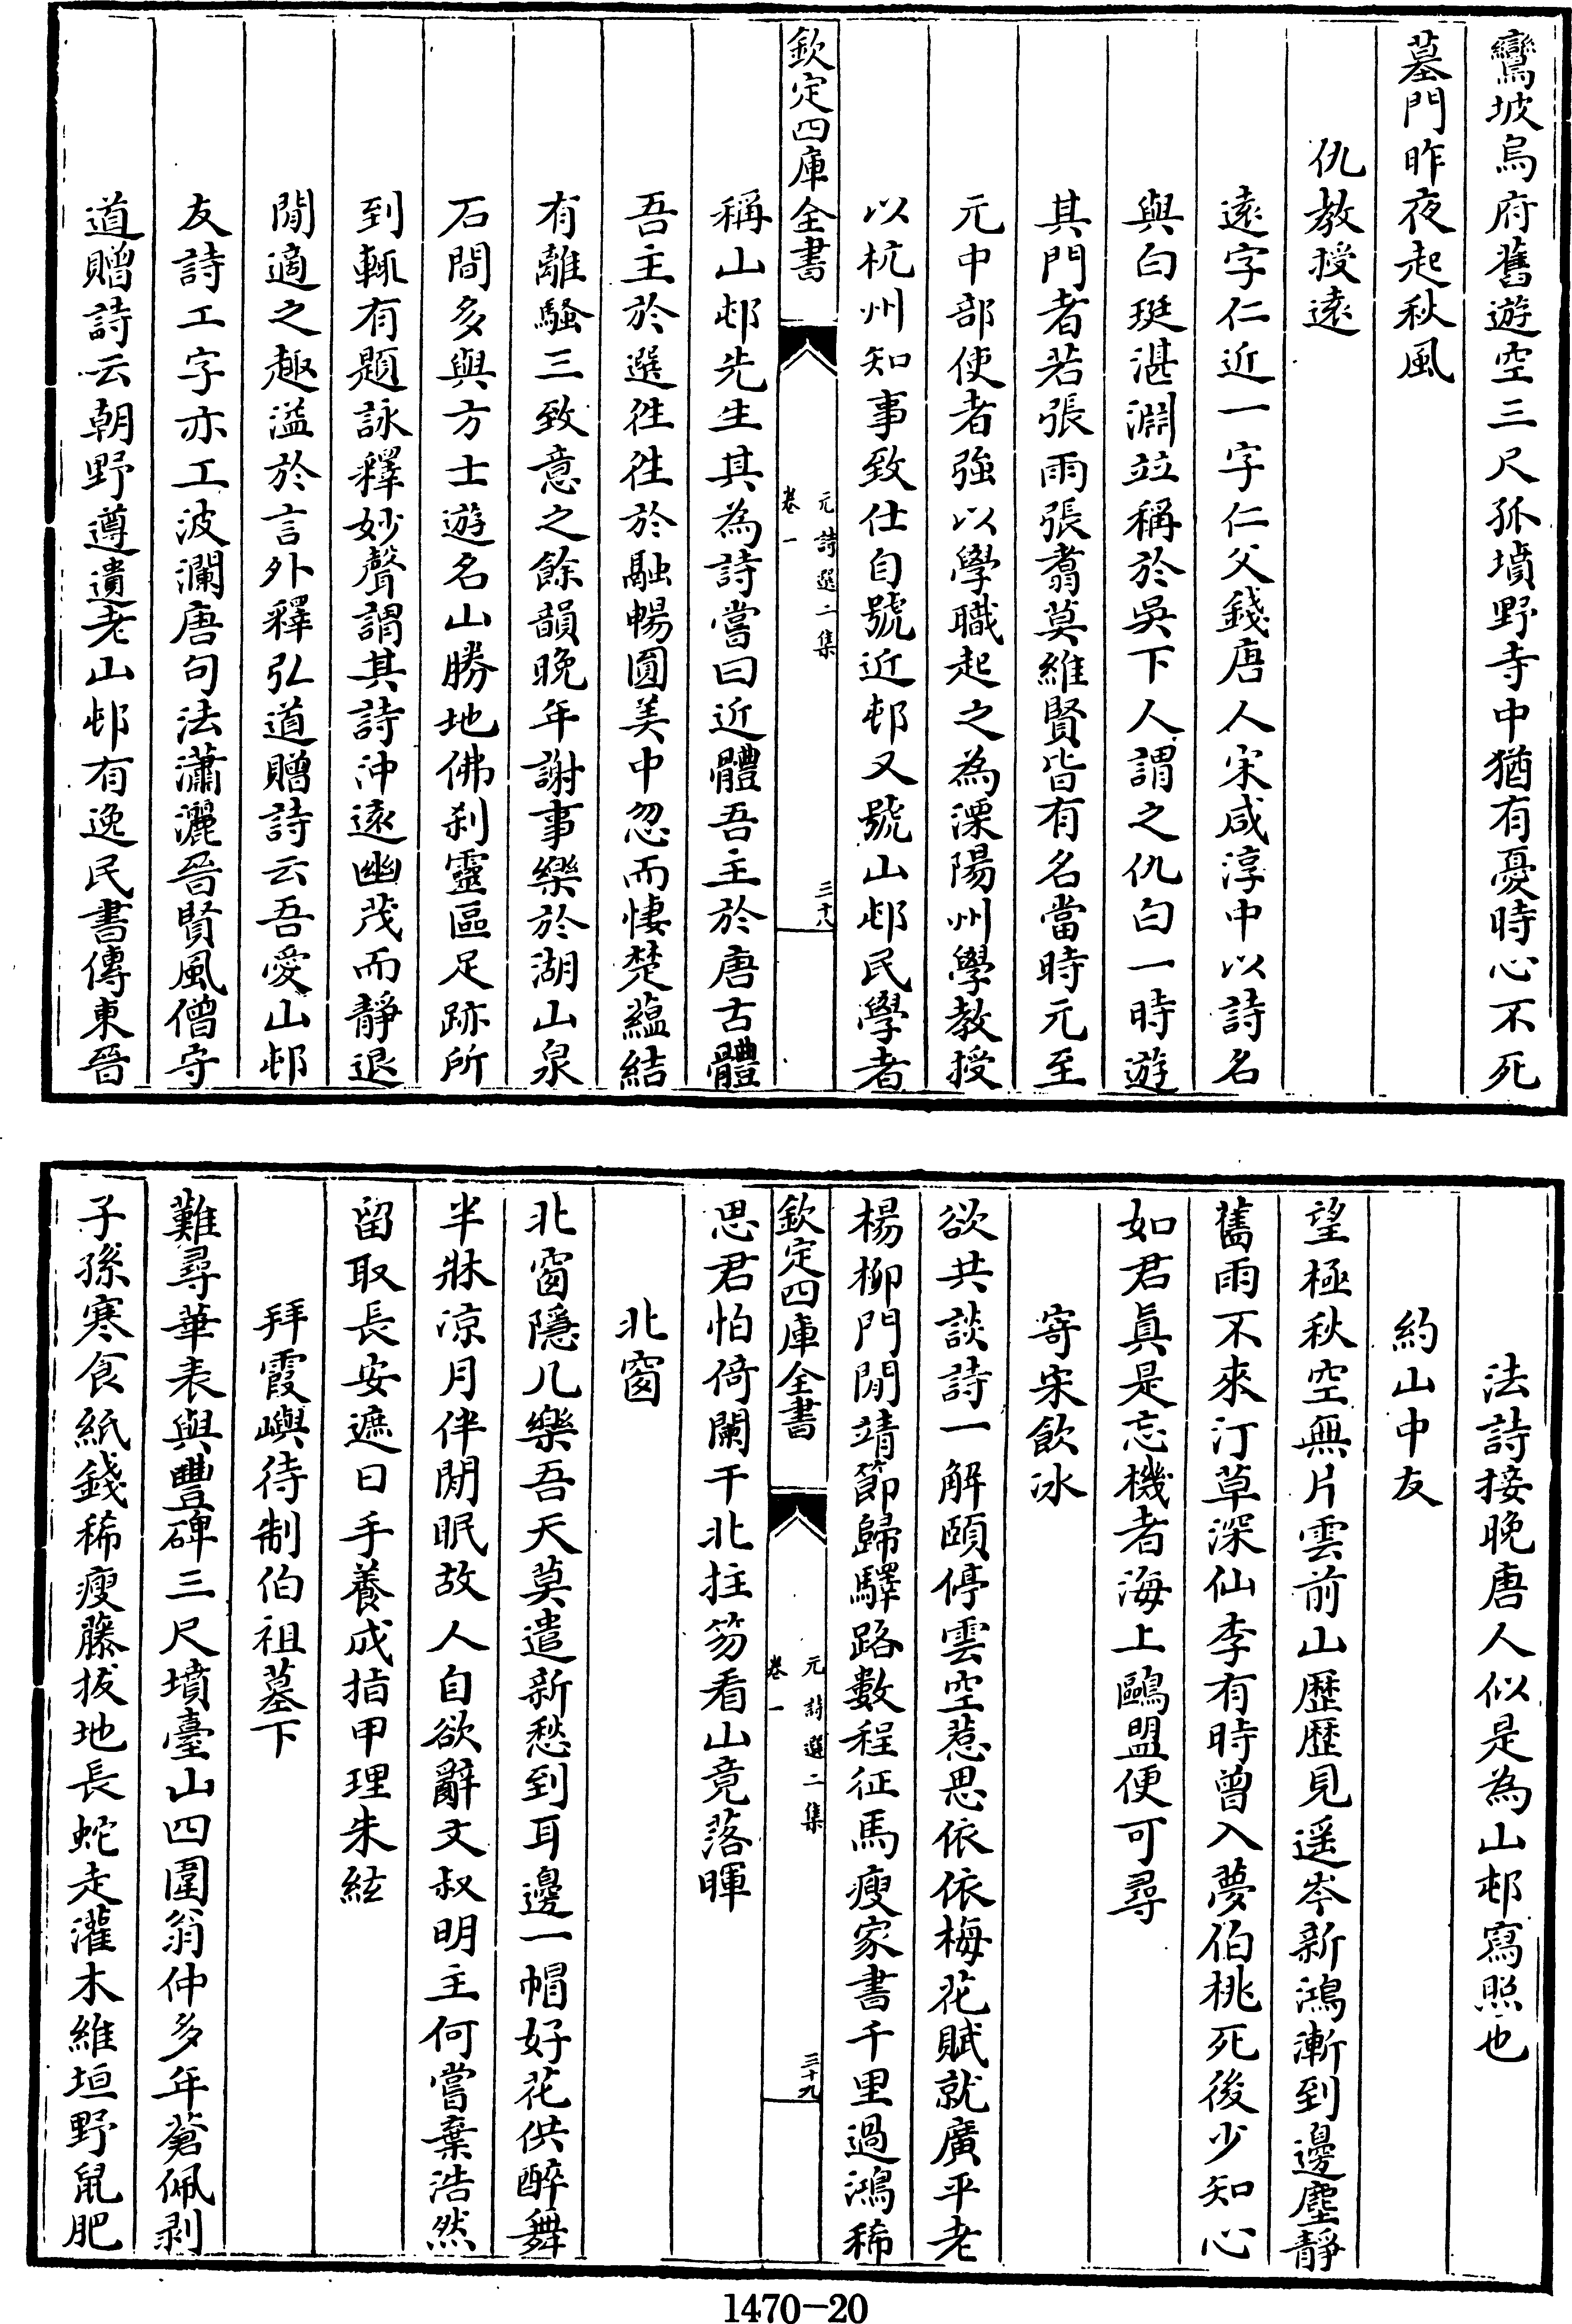 鸞坡烏府舊遊空三尺孤墳野寺中猶有憂時心不死
墓門昨夜起秋風
仇教授遠
遠字仁近一字仁父錢唐人宋咸淳中以詩名
與白珽湛淵竝稱於吳下人謂之仇白一時遊
其門者若張雨張翥莫維賢皆有名當時元至
元中部使者強以學職起之為溧陽州學教授
以杭州知事致仕自號近邨又號山邨民學者
欽定四庫全書
元詩選二集
卷一
三十八
稱山邨先生其為詩嘗曰近體吾主於唐古體
吾主於選徃徃於融暢圓美中忽而悽楚蘊結
有離騷三致意之餘韻晚年謝事樂於湖山泉
石間多與方士遊名山勝地佛刹靈區足跡所
到輒有題詠釋妙聲謂其詩沖遠幽茂而靜退
閒適之趣溢於言外釋弘道贈詩云吾愛山邨
友詩工字亦工波瀾唐句法瀟灑晉賢風僧守
道贈詩云朝野遵遺老山邨有逸民書傳東晉
法詩接晚唐人似是為山邨寫照也
約山中友
望極秋空無片雲前山歷歷見遥岑新鴻漸到邊塵靜
舊雨不來汀草深仙李有時曾入夢伯桃死後少知心
如君眞是忘機者海上鷗盟便可尋
寄宋飲冰
欲共談詩一解頤停雲空惹思依依梅花賦就廣平老
楊柳門閒靖節歸驛路數程征馬瘦家書千里過鴻稀
欽定四庫全書
元詩選二集
卷一
三十九
思君怕倚闌干北拄笏看山竟落暉
北窗
北窗隱几樂吾天莫遣新愁到耳邊一帽好花供醉舞
半牀凉月伴閒眠故人自欲辭文叔明主何嘗棄浩然
留取長安遮日手養成指甲理朱絃
拜霞嶼待制伯祖墓下
難尋華表與豐碑三尺墳臺山四圍翁仲多年蒼佩剥
子孫寒食紙錢稀瘦藤拔地長蛇走灌木維垣野鼠肥
1470-20